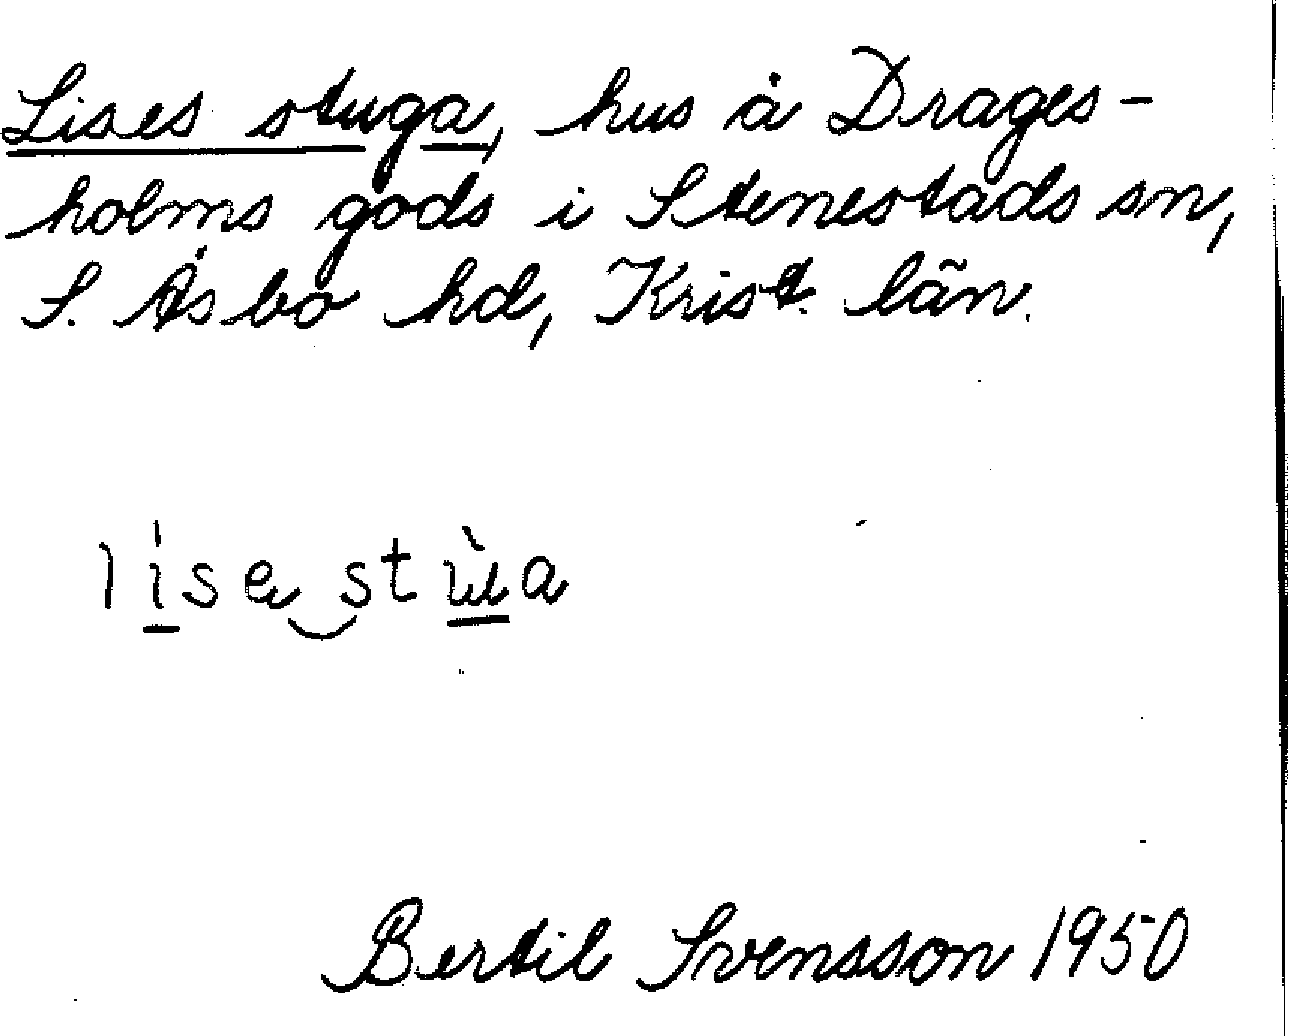 Lises stuga, hus å Drages-
holms gods i Stenestads sn,
S. Åsbo hd, Krist. län.
lise stùa
Bertil Svensson 1950